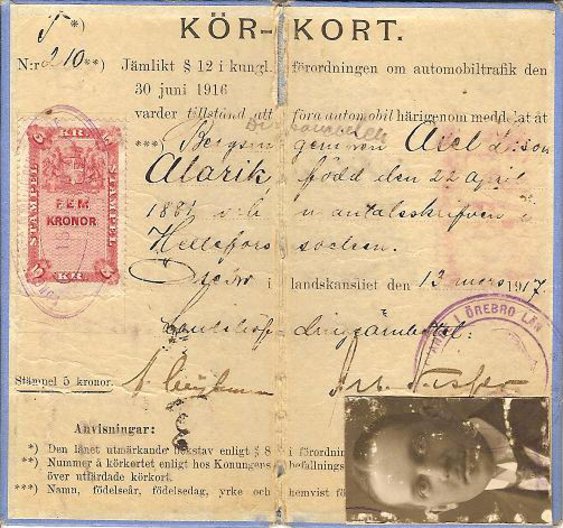 T *)
KÖR-KORT.
N:r 210 **) Jämlikt § 12 i kungl. förordningen om automobiltrafik den
30 juni 1916
varder tillstånd att föra automobil härigenom meddelat åt
***) Axel
Alarik, född den 22 april
mantalsskrifven i
Hellefors socken.
Örebro i landskansliet den 13 mars 1917
Landshöfdingeämbetet:
STÄMPEL
5 KR 5
FEM
KRONOR
STÄMPEL
5 KR 5
I ÖREBRO LÄN
Stämpel 5 kronor.
Anvisningar:
*) Den länet utmärkande bokstav enligt § 8 i förordnin
**) Nummer å körkortet enligt hos Konungens befallnings
över utfärdade körkort.
***) Namn, födelseår, födelsedag, yrke och hemvist fö